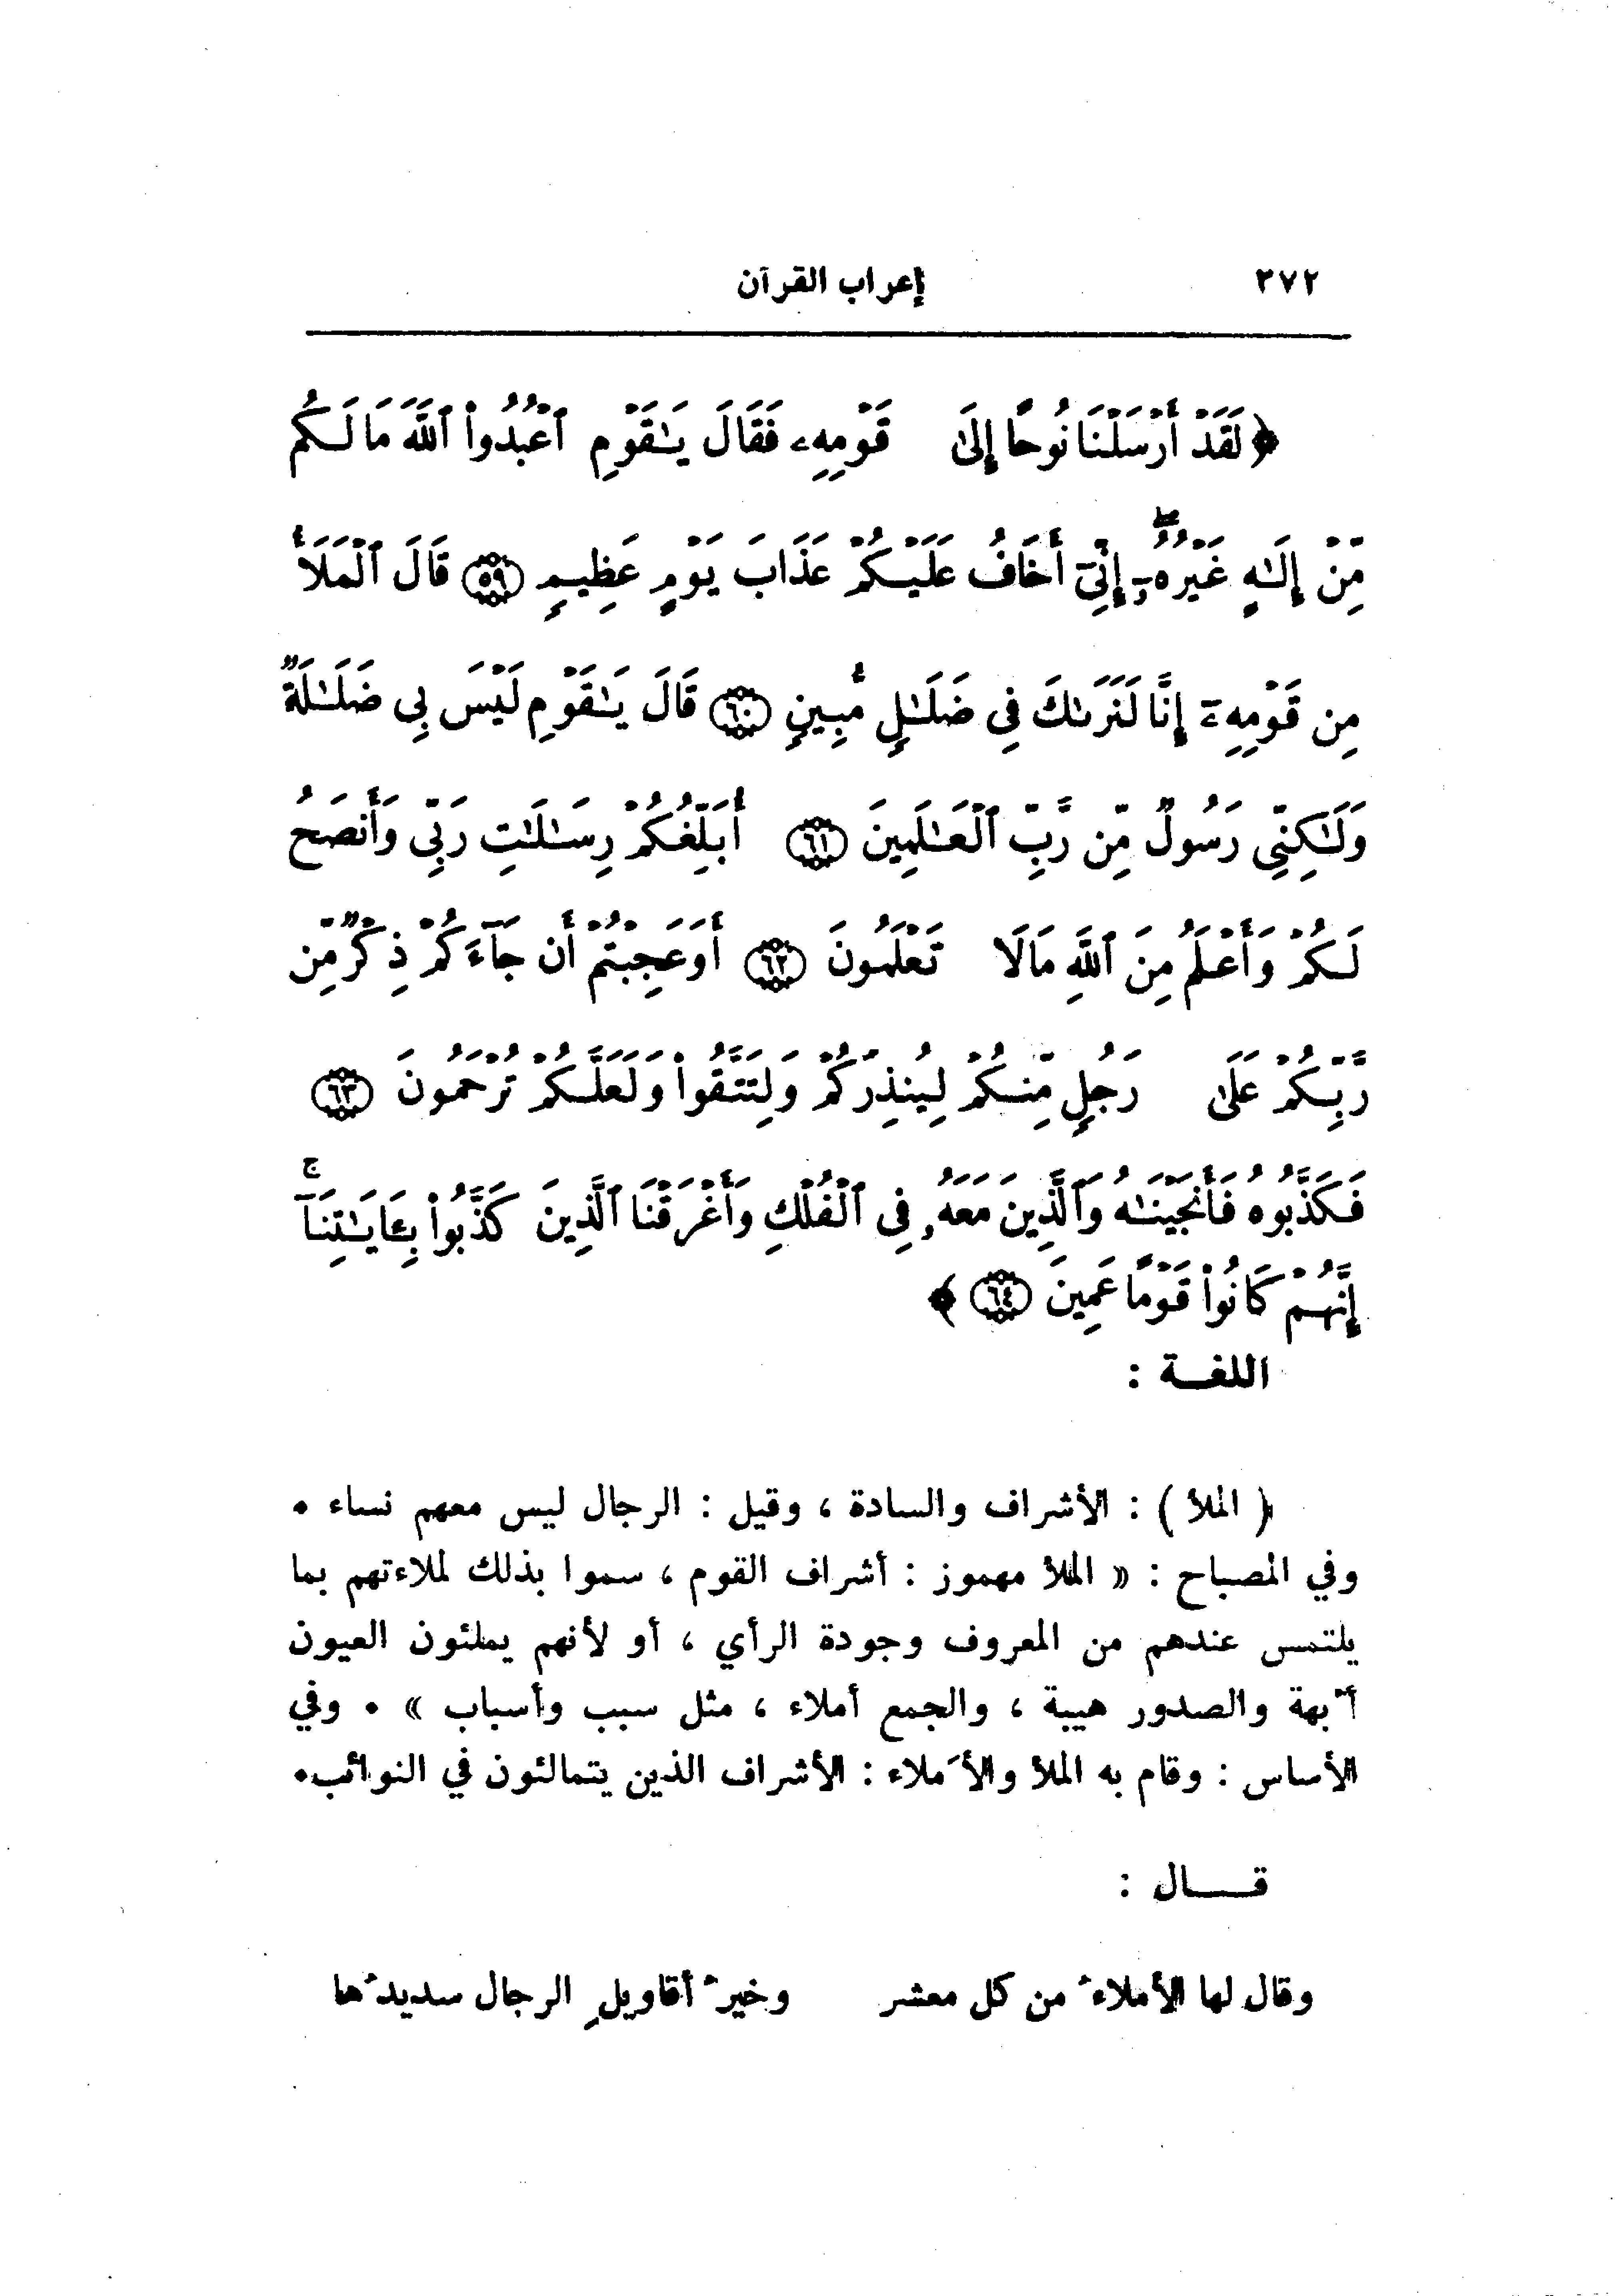 ٣٧٢ إعراب القرآن
﴿لَقَدْ أَرْسَلْنَا نُوحًا إِلَىٰ قَوْمِهِۦ فَقَالَ يَـٰقَوْمِ ٱعْبُدُوا۟ ٱللَّهَ مَا لَكُم
مِّنْ إِلَـٰهٍ غَيْرُهُۥٓ ۖ إِنِّىٓ أَخَافُ عَلَيْكُمْ عَذَابَ يَوْمٍ عَظِيمٍ (٥٩) قَالَ ٱلْمَلَأُ
مِن قَوْمِهِۦٓ إِنَّا لَنَرَىٰكَ فِى ضَلَـٰلٍ مُّبِينٍ (٦٠) قَالَ يَـٰقَوْمِ لَيْسَ بِى ضَلَـٰلَةٌ
وَلَـٰكِنِّى رَسُولٌ مِّن رَّبِّ ٱلْعَـٰلَمِينَ (٦١) أُبَلِّغُكُمْ رِسَـٰلَـٰتِ رَبِّى وَأَنصَحُ
لَكُمْ وَأَعْلَمُ مِنَ ٱللَّهِ مَا لَا تَعْلَمُونَ (٦٢) أَوَعَجِبْتُمْ أَن جَآءَكُمْ ذِكْرٌ مِّن
رَّبِّكُمْ عَلَىٰ رَجُلٍ مِّنكُمْ لِيُنذِرَكُمْ وَلِتَتَّقُوا۟ وَلَعَلَّكُمْ تُرْحَمُونَ (٦٣)
فَكَذَّبُوهُ فَأَنجَيْنَـٰهُ وَٱلَّذِينَ مَعَهُۥ فِى ٱلْفُلْكِ وَأَغْرَقْنَا ٱلَّذِينَ كَذَّبُوا۟ بِـَٔايَـٰتِنَآ ۚ
إِنَّهُمْ كَانُوا۟ قَوْمًا عَمِينَ (٦٤) ﴾
اللغـــة :
( الملأ ) : الأشراف والسادة ، وقيل : الرجال ليس معهم نساء .
وفي المصباح : « الملأ مهموز : أشراف القوم ، سموا بذلك لملاءتهم بما
يلتمس عندهم من المعروف وجودة الرأي ، أو لأنهم يملئون العيون
أُبهة والصدور هيبة ، والجمع أملاء ، مثل سبب وأسباب » . وفي
الأساس : وقام به الملأ والأَملاء : الأشراف الذين يتمالئون في النوائب.
قـــــال :
وقال لها الأملاءُ من كل معشر وخيرُ أقاويلِ الرجال سديدُها